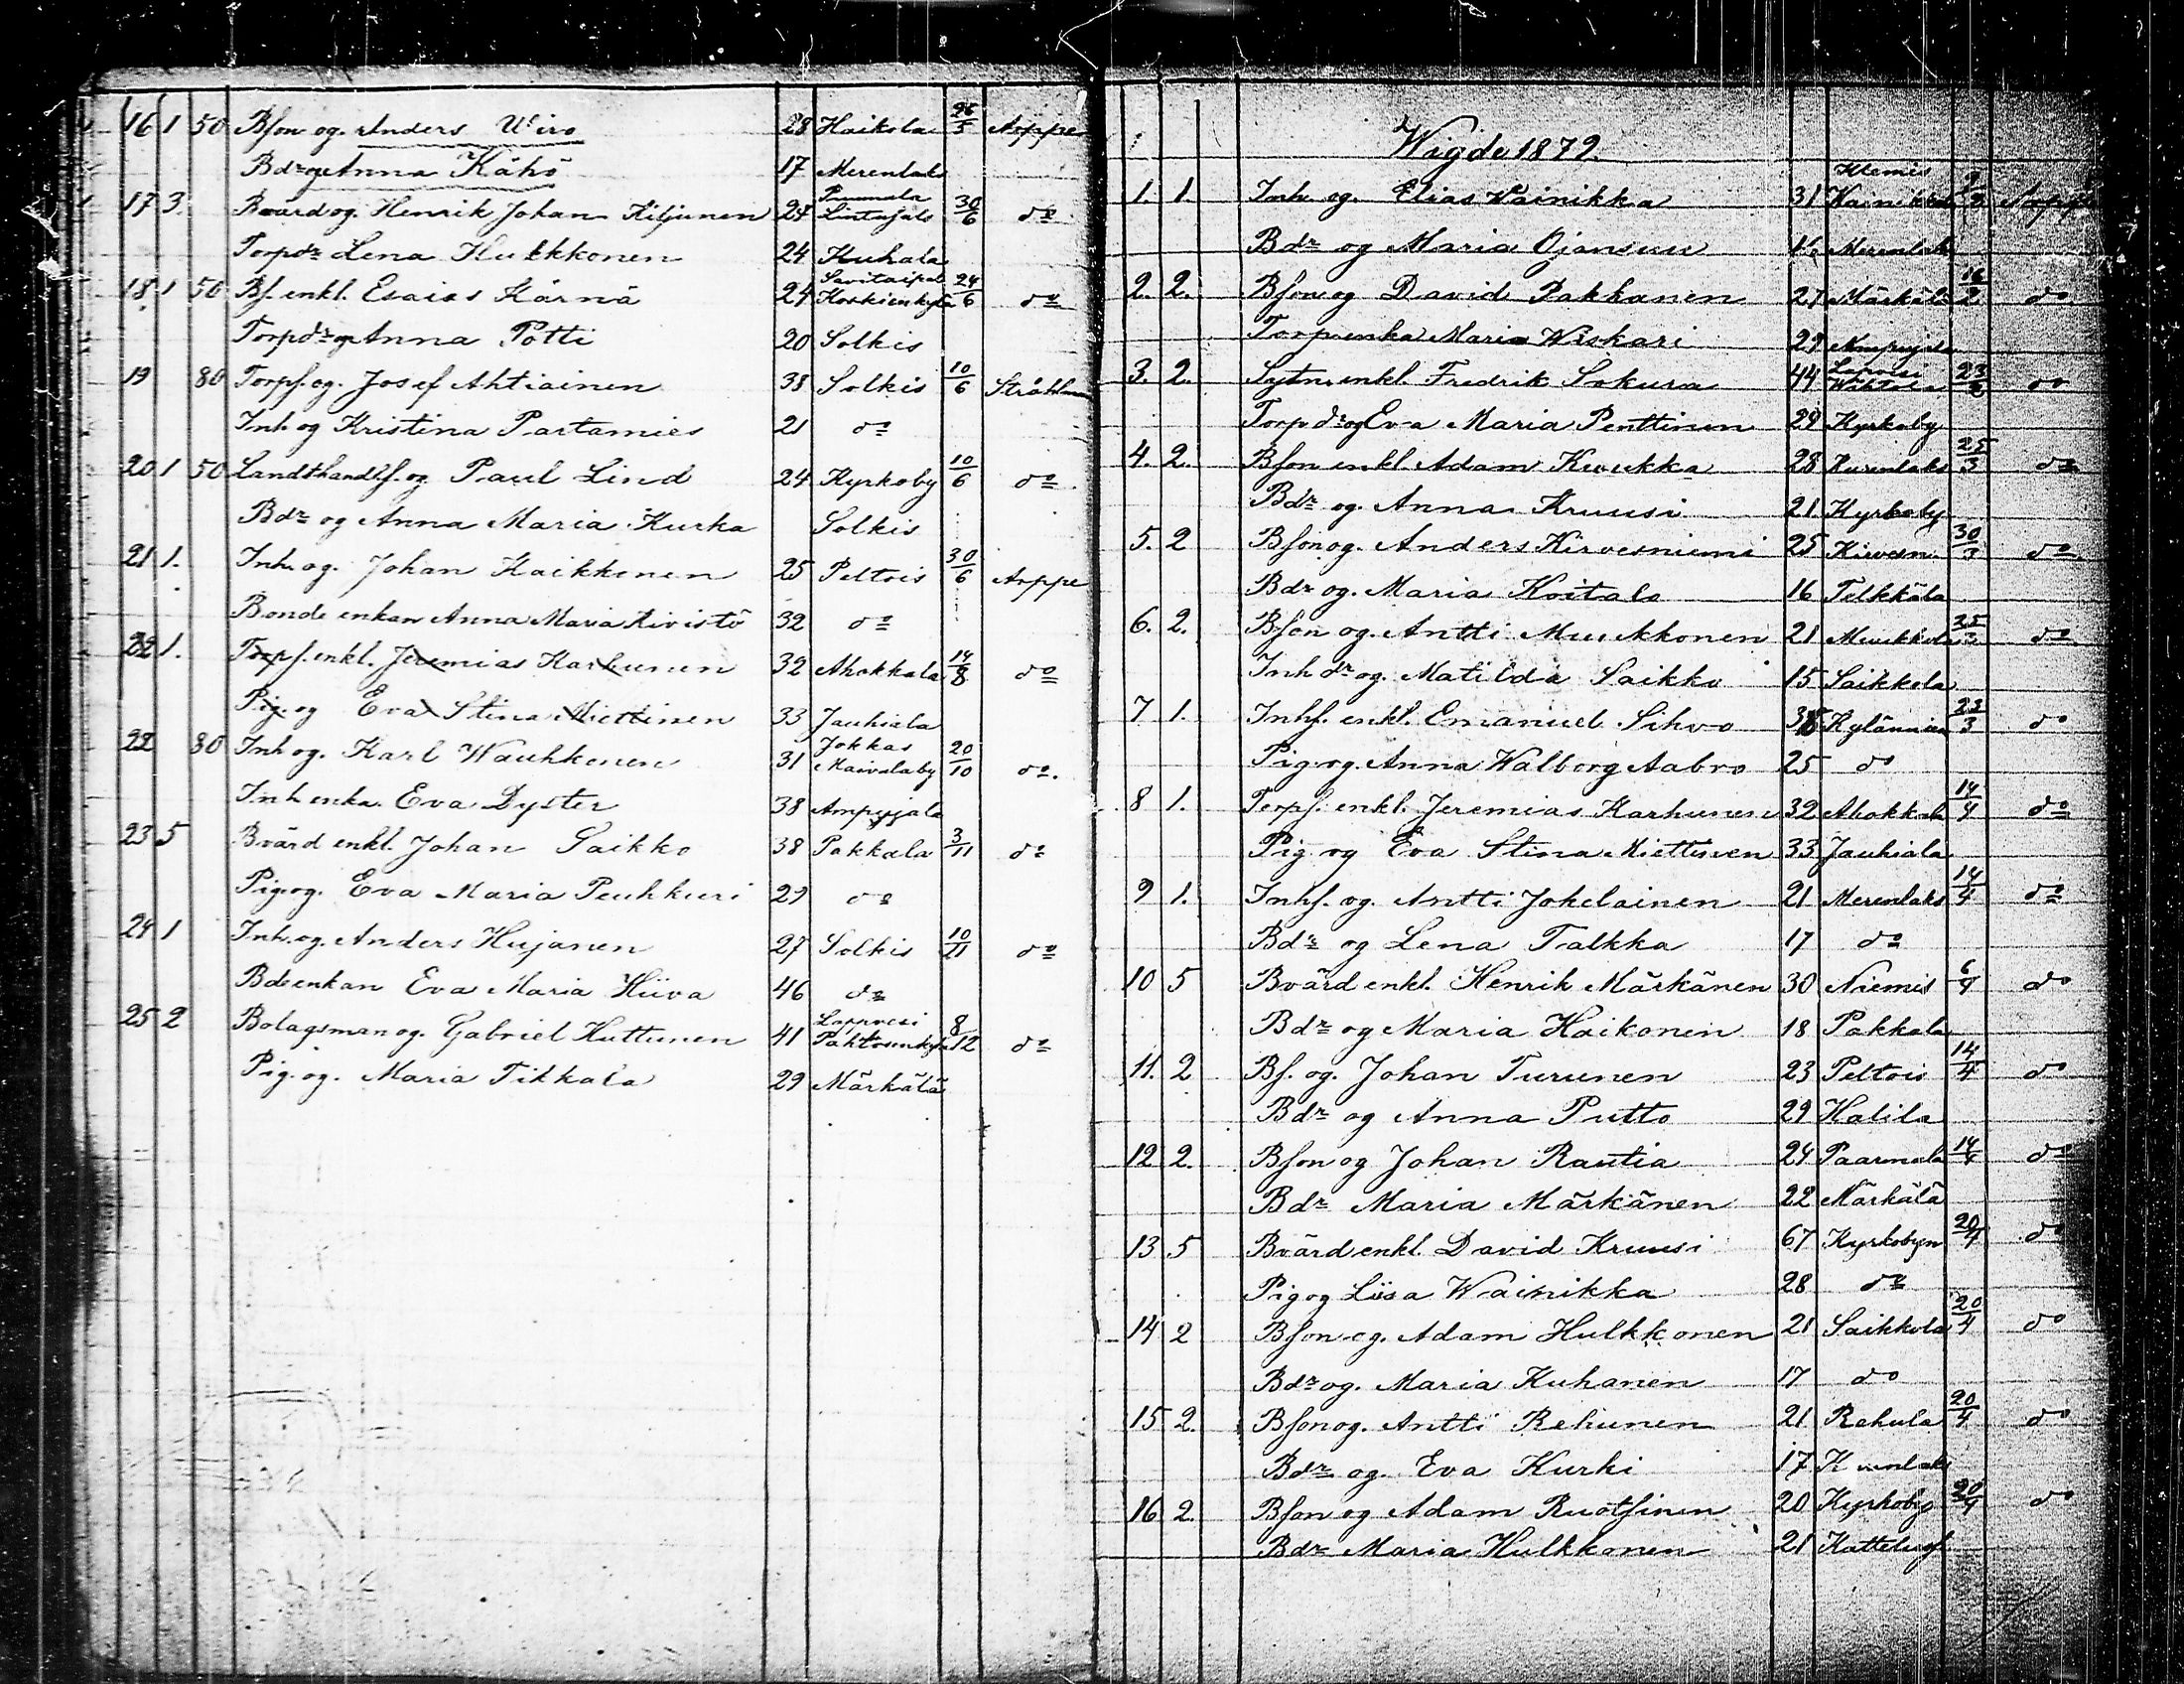 16 1 50 Bson og. Anders Wiro 28 Haikola 26/5 Arppe
Bdr og Anna Kähö 17 Merenlaks
17 3. Bvärd og. Henrik Johan Kiljunen 24 Puumala Lintusalo 30/6 do
Torpdr Lena Hulkkonen 24 Kuhala
18 1 50 Bs. enkl. Esaias Kärnä 24 Savitaipal Koskienkylä 24/6 do
Torpdr og Anna Potti 20 Solkis
19 80 Torps. og. Josef Ahtiainen 38 Solkis 10/6 Stråhlman
Inh og Kristina Partamies 21 do
20 1 50 Landthandls. og Paul Lind 24 Kyrkoby 10/6 do
Bdr og Anna Maria Kurka Solkis
21 1. Inh. og. Johan Kaikkonen 25 Peltois 30/6 Arppe
Bonde enkan Anna Maria Kivistö 32 do
22 1. Torps. enkl. Jeremias Karhunen 32 Ahokkala 14/8 do
Pig. og Eva Stina Miettinen 33 Jauhiala
22 80 Inh og. Karl Wauhkonen 31 Jokkas Maivalaby 20/10 do.
Inh enka. Eva Dyster 38 Ampujala
23 5 Bvärd enkl. Johan Saikko 38 Pakkala 3/11 do
Pig. og. Eva Maria Peuhkuri 29 do
24 1 Inh. og. Anders Hujanen 27 Solkis 10/11 do
Bdeenkan Eva Maria Hiiva 46 do
25 2 Bolagsman og. Gabriel Huttunen 41 Lappvesi 8/12 do
Pig. og. Maria Tikkala 29 Märkälä
Wigde 1879.
1. 1. Inh. og. Elias Wainikka 31 Klemis Wainikkala Arppe
Bdr og Maria Ojansuu Merenlaks
2. 2. Bson og David Pakkanen 27 Märkälä 16/2 do
Torpenka Maria Wiskari 29 Ampujala
3. 2. Sytn. enkl. Fredrik Sokura 44 Lapvesi 23/2 do
Torpdr og Eva Maria Penttinen 29 Kyrkoby
4. 2. Bson enkl. Adam Kuukka 28 Kurenlaks 25/3 do
Bdr og. Anna Kruusi 21 Kyrkoby
5. 2 Bson og. Anders Kirvesniemi 25 Kirvesn. 30/3 do
Bdr og. Maria Koitalo 16 Telkkälä
6. 2. Bson og. Antti Muukkonen 21 Muukkola 25/3 do
Inh dr og. Matilda Saikko 15 Saikkola
7 1. Inhs. enkl. Emanuel Sihvo Kylänniem 23/3 do
Pig og. Anna Walborg Aabro 25 do
8 1. Torps. enkl. Jeremias Karhunen 32 Ahokkala 14/4 do
Pig og Eva Stina Miettinen 33 Jauhiala
9 1. Inhs. og. Antti Jokelainen 21 Merenlaks 14/4 do
Bdr og Lena Talkka 17 do
10 5 Bvärd enkl. Henrik Märkänen 30 Niemis 6/4 do
Bdr og Maria Haikonen 18 Pakkala
11. 2 Bs. og. Johan Turunen 23 Peltois 14/4 do
Bdr og Anna Putto 29 Halila
12 2. Bson og Johan Rautia 24 Paarmala 14/4 do
Bdr Maria Märkänen 22 Märkälä
13 5 Bvärd enkl. David Kruusi 67 Kyrkobyn 20/4 do
Pig og Liisa Wainikka 28 do
14 2 Bson og. Adam Hulkkonen 21 Saikkola 20/4 do
Bdr og. Maria Kuhanen 17 do
15 2. Bson og. Antti Rehunen 21 Rahula 20/4 do
Bdr og. Eva Kurki 17
16 2. Bson og Adam Ruotsinen 20 Kyrkoby 20/4 do
Bdr Maria Hulkkonen 21